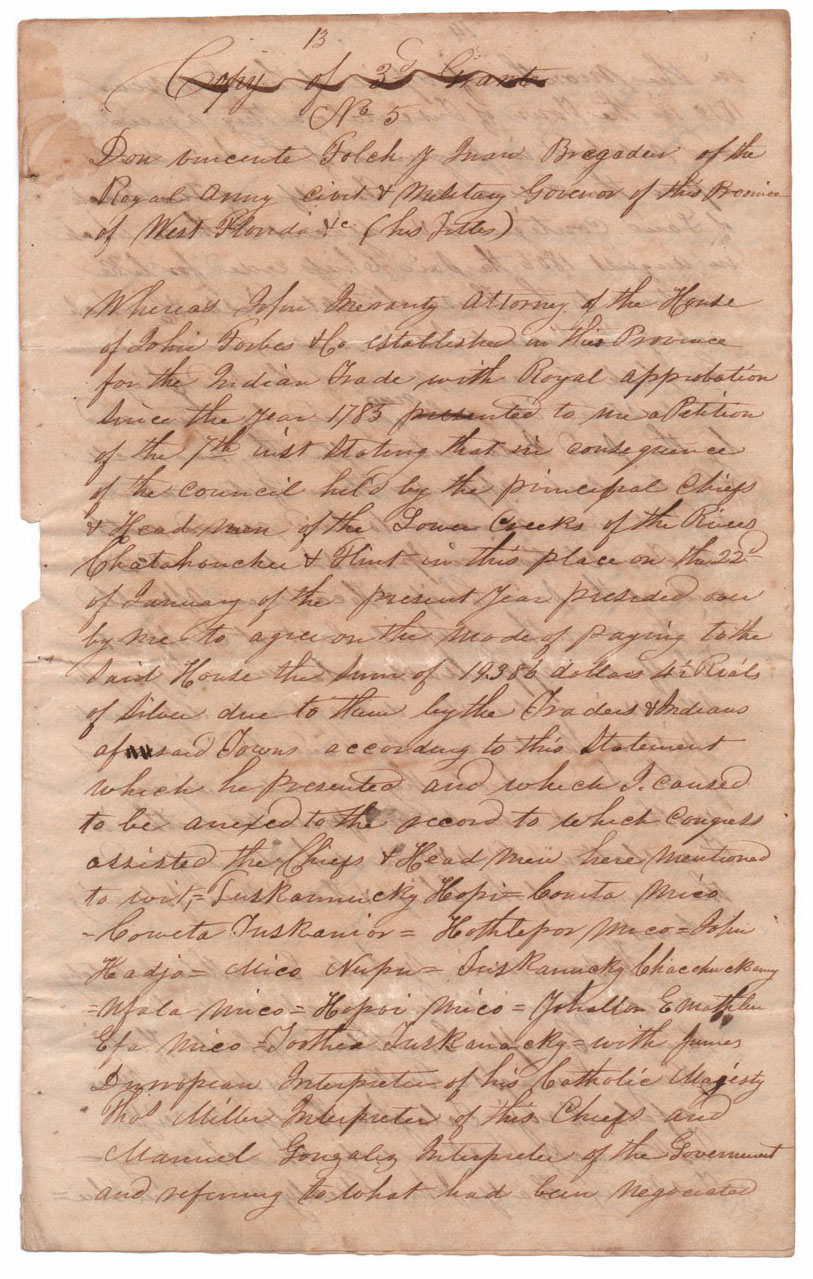 13
Copy of 3d Grant
No 5
Don vincente Folch y Juan Bregadier of the
Royal Army civil & Military Govenor of this Province
of West Florida &c (his Titles)
Whereas John Inerarity Attorney of the House
of John Forbes & Co established in this Province
for the Indian Trade with Royal approbation
since the Year 1783 presented to me a Petition
of the 7th inst Stating that in consequence
of the council held by the principal Chiefs
& Head men of the Lower Creeks of the Rivers
Chatahouchee & Flint in this place on the 22d
of January of the present Year presided over
by me to agree on the mode of paying to the
Said House the Sum of 19386 dollars 4½ Rials
of Silver due to them by the Traders & Indians
aforesaid Towns according to this Statement
which he presented and which I caused
to be anexed to the record to which Congress
assisted the Chiefs & Head Men here mentioned
to wit,= Tuskannucky Hopi= Coweta Mico
=Coweta Tuskanior= Hothlepor Mico= John
Hadjo= Mico Nupu= Tuskanucky
=Ufala Mico= Hopoi Mico= Emathlee
Efa Mico= Tuskanacky= with James
Interpreter of his Catholic Majesty
Thos Miller Interpreter of this Chiefs and
Manuel Gonzalez Interpreter of the Government
and referring to what had been negociated